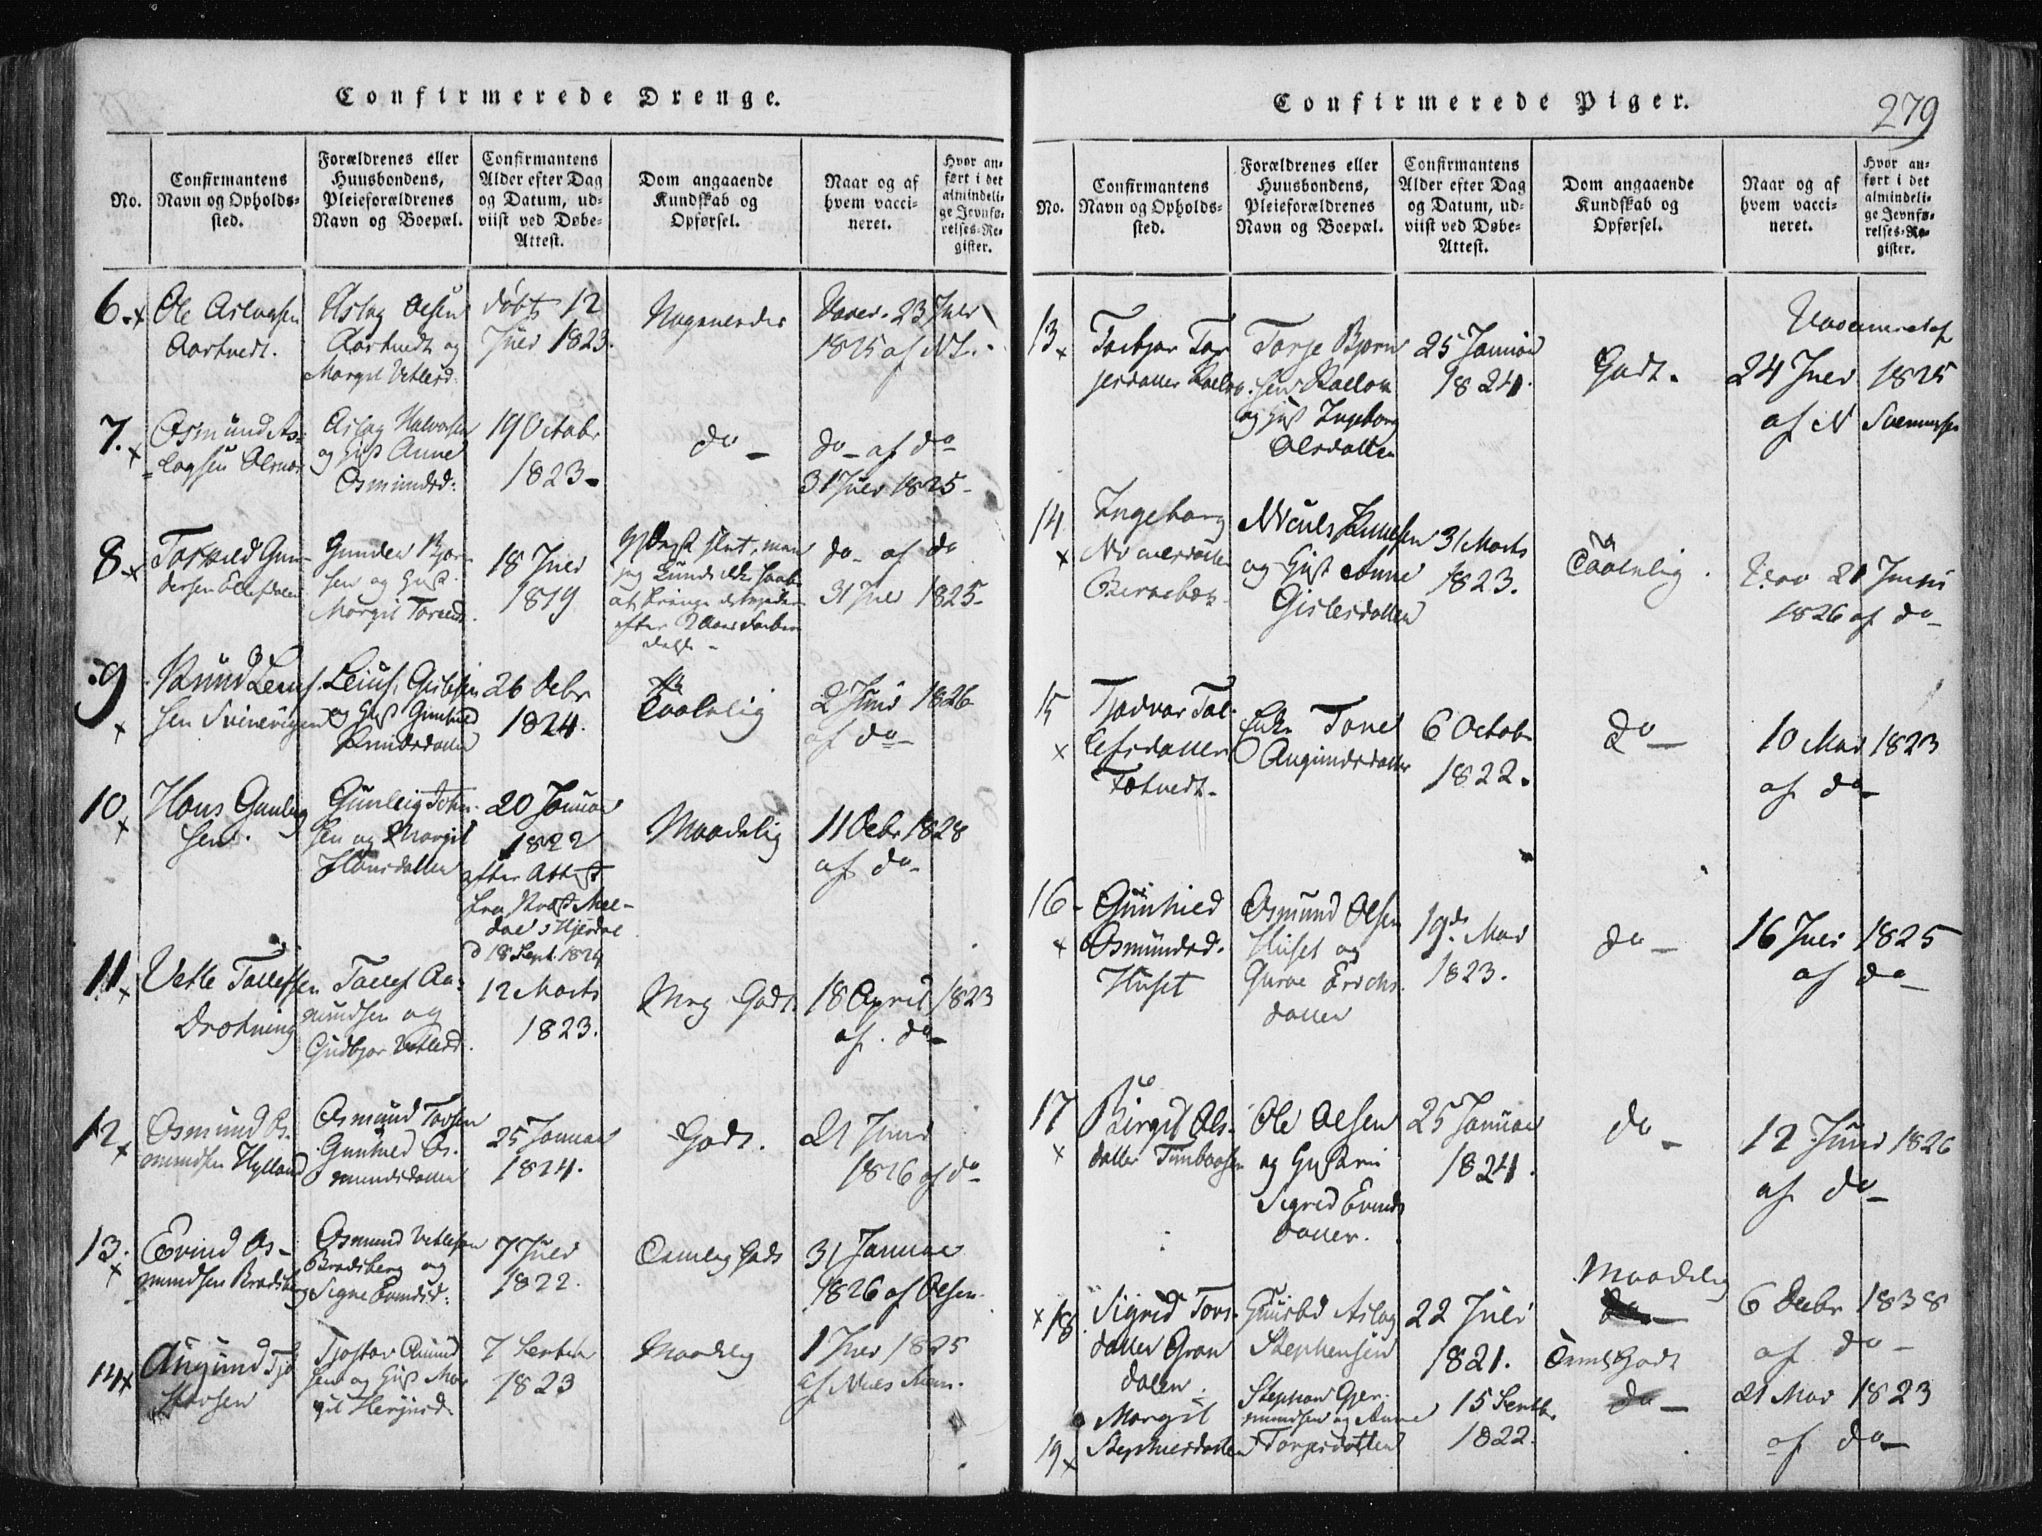 Confirmerede Drenge.
No.
Confirmantens
Navn og Opholds-
sted.
Forældrenes eller
Huusbondens,
Pleieforældrenes
Navn og Boepæl.
Confirmantens
Alder efter Dag
og Datum, ud-
viist ved Døbe-
Attest.
Dom angaaende
Kundskab og
Opførsel.
Naar og af
hvem vacci-
neret.
Hvor an-
ført i det
almindeli-
ge Jevnfø-
relses-Re-
gister.
6.
Ole Aslagsen
Aartvedt.
Aslag Olsen
Aartvedt og
Margit Vetlesd.
døbt 12
Juli 1823.
23 Juli
1825 af
7.
Osmund As-
lagsen
Aslag Halvorsen
og Hust Anne
Osmundsd:
19 Octobr
1823.
do
do af do
31 Juli 1825
8
Gun-
dersen
Gunder
sen og Hust
Margit
18 Juli
1819
do af do
31 Juli 1825
9
Knud Leiuf-
sen Svinevigen
Leiuf
og Hust Gunhild
Knudsdatter
26 Debr
1824.
Taalelig
2 Juni 1826
af do
10
Hans Gunleig
sen.
Gunleig John
sen og Margit
Hansdatter
20 Januar
1822
efter Attest
fra Provst
dal i Hjerdal
d 18 Sept. 1824
Maadelig
11 Debr 1828
af do
11
Vetle Tallefsen
Drotning
Tallef Aa-
mundsen og
Gudbjor Vetlesd.
12 Marts
1823.
Meg Godt
18 April 1823
af do
12
Osmund Os-
mundsen Hylland
Osmund
Gunhild Os-
mundsdatter
25 Januar
1824.
Godt.
21 Juni
1826 af do
13.
Evind Os-
mundsen Bradsberg
Osmund Vetlesen
Bradsberg og
Signe Evindsd:
7 Juli
1822.
Temlig Godt
31 Januar
1826 af Olsen
14
Augund Tjo
stovsen
Tjostov
sen og Hust Mar
git
7
1823
Maadelig
1 Juli 1825
af Niels
Confirmerede Piger.
279
No.
Confirmantens
Navn og Opholds-
sted.
Forældrenes eller
Huusbondens,
Pleieforældrenes
Navn og Boepæl.
Confirmantens
Alder efter Dag
og Datum, ud-
viist ved Døbe-
Attest.
Dom angaaende
Kundskab og
Opførsel.
Naar og af
hvem vacci-
neret.
Hvor an-
ført i det
almindeli-
ge Jevnfø-
relses-Re-
gister.
13
Torbjor Tor
jesdatter
Torje Bjorn
sen
og Hust Ingeborg
Olsdatter
25 Januar
1824.
Godt.
24 Juli 1825
af N
14
Ingeborg
og Hust Anne
Gislesdatter
31 Marts
1823.
Taalelig
21 Juni
1826 af do
15
Tal-
lefsdatter
Enke Tone
Augundsdatter
6 Octobr
1822.
do
10 Mai 1823
af do
16
Gunhild
Osmundsd.
Huset
Osmund Olsen
Huset og
Guroe Erichs
datter
19de Mai
1823.
do
16 Juli 1825
af do
17
Birgit Ols-
datter
Ole Olsen
og
Sigrid Evinds
datter.
25 Januar
1824.
do
12 Juni 1826
af do
18
Sigrid Tors-
datter Gran
dalen
Aslag
Stephensen
22 Juli
1821.
Maadelig
6 Debr 1838
af do
19
Margit
Stephensdatter
Stephen Gjer-
mundsen og Anne
Torjesdatter
15 Septbr
1822.
Godt
do
21 Mai 1823
af do